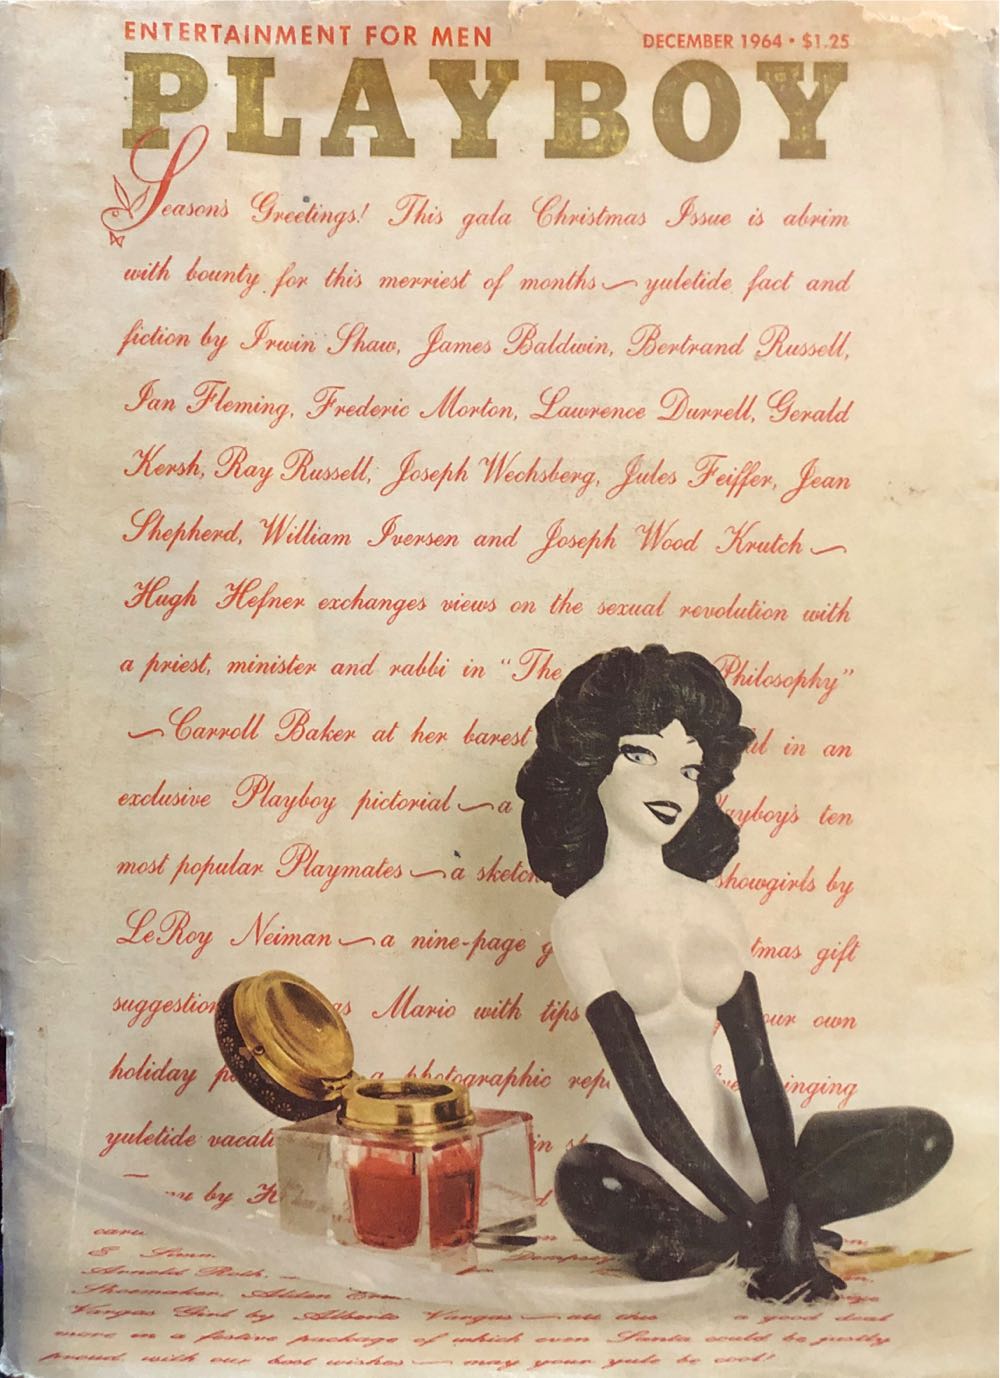 ENTERTAINMENT FOR MEN
DECEMBER 1964 • $1.25
PLAYBOY
Season's Greetings! This gala Christmas Issue is abrim
with bounty for this merriest of months — yuletide fact and
fiction by Irwin Shaw, James Baldwin, Bertrand Russell,
Ian Fleming, Frederic Morton, Lawrence Durrell, Gerald
Kersh, Ray Russell, Joseph Wechsberg, Jules Feiffer, Jean
Shepherd, William Iversen and Joseph Wood Krutch —
Hugh Hefner exchanges views on the sexual revolution with
a priest, minister and rabbi in “The Philosophy”
— Carroll Baker at her barest in an
exclusive Playboy pictorial — a ayboy's ten
most popular Playmates — a sketch showgirls by
LeRoy Neiman — a nine-page tmas gift
suggestion as Mario with tips our own
holiday a photographic inging
yuletide vacati in
by
Dempsey
Arnold Roth,
Shoemaker, Alden
Vargas Girl by Alberto Vargas — all this a good deal
more in a festive package of which even Santa could be justly
proud, with our best wishes — may your yule be cool!